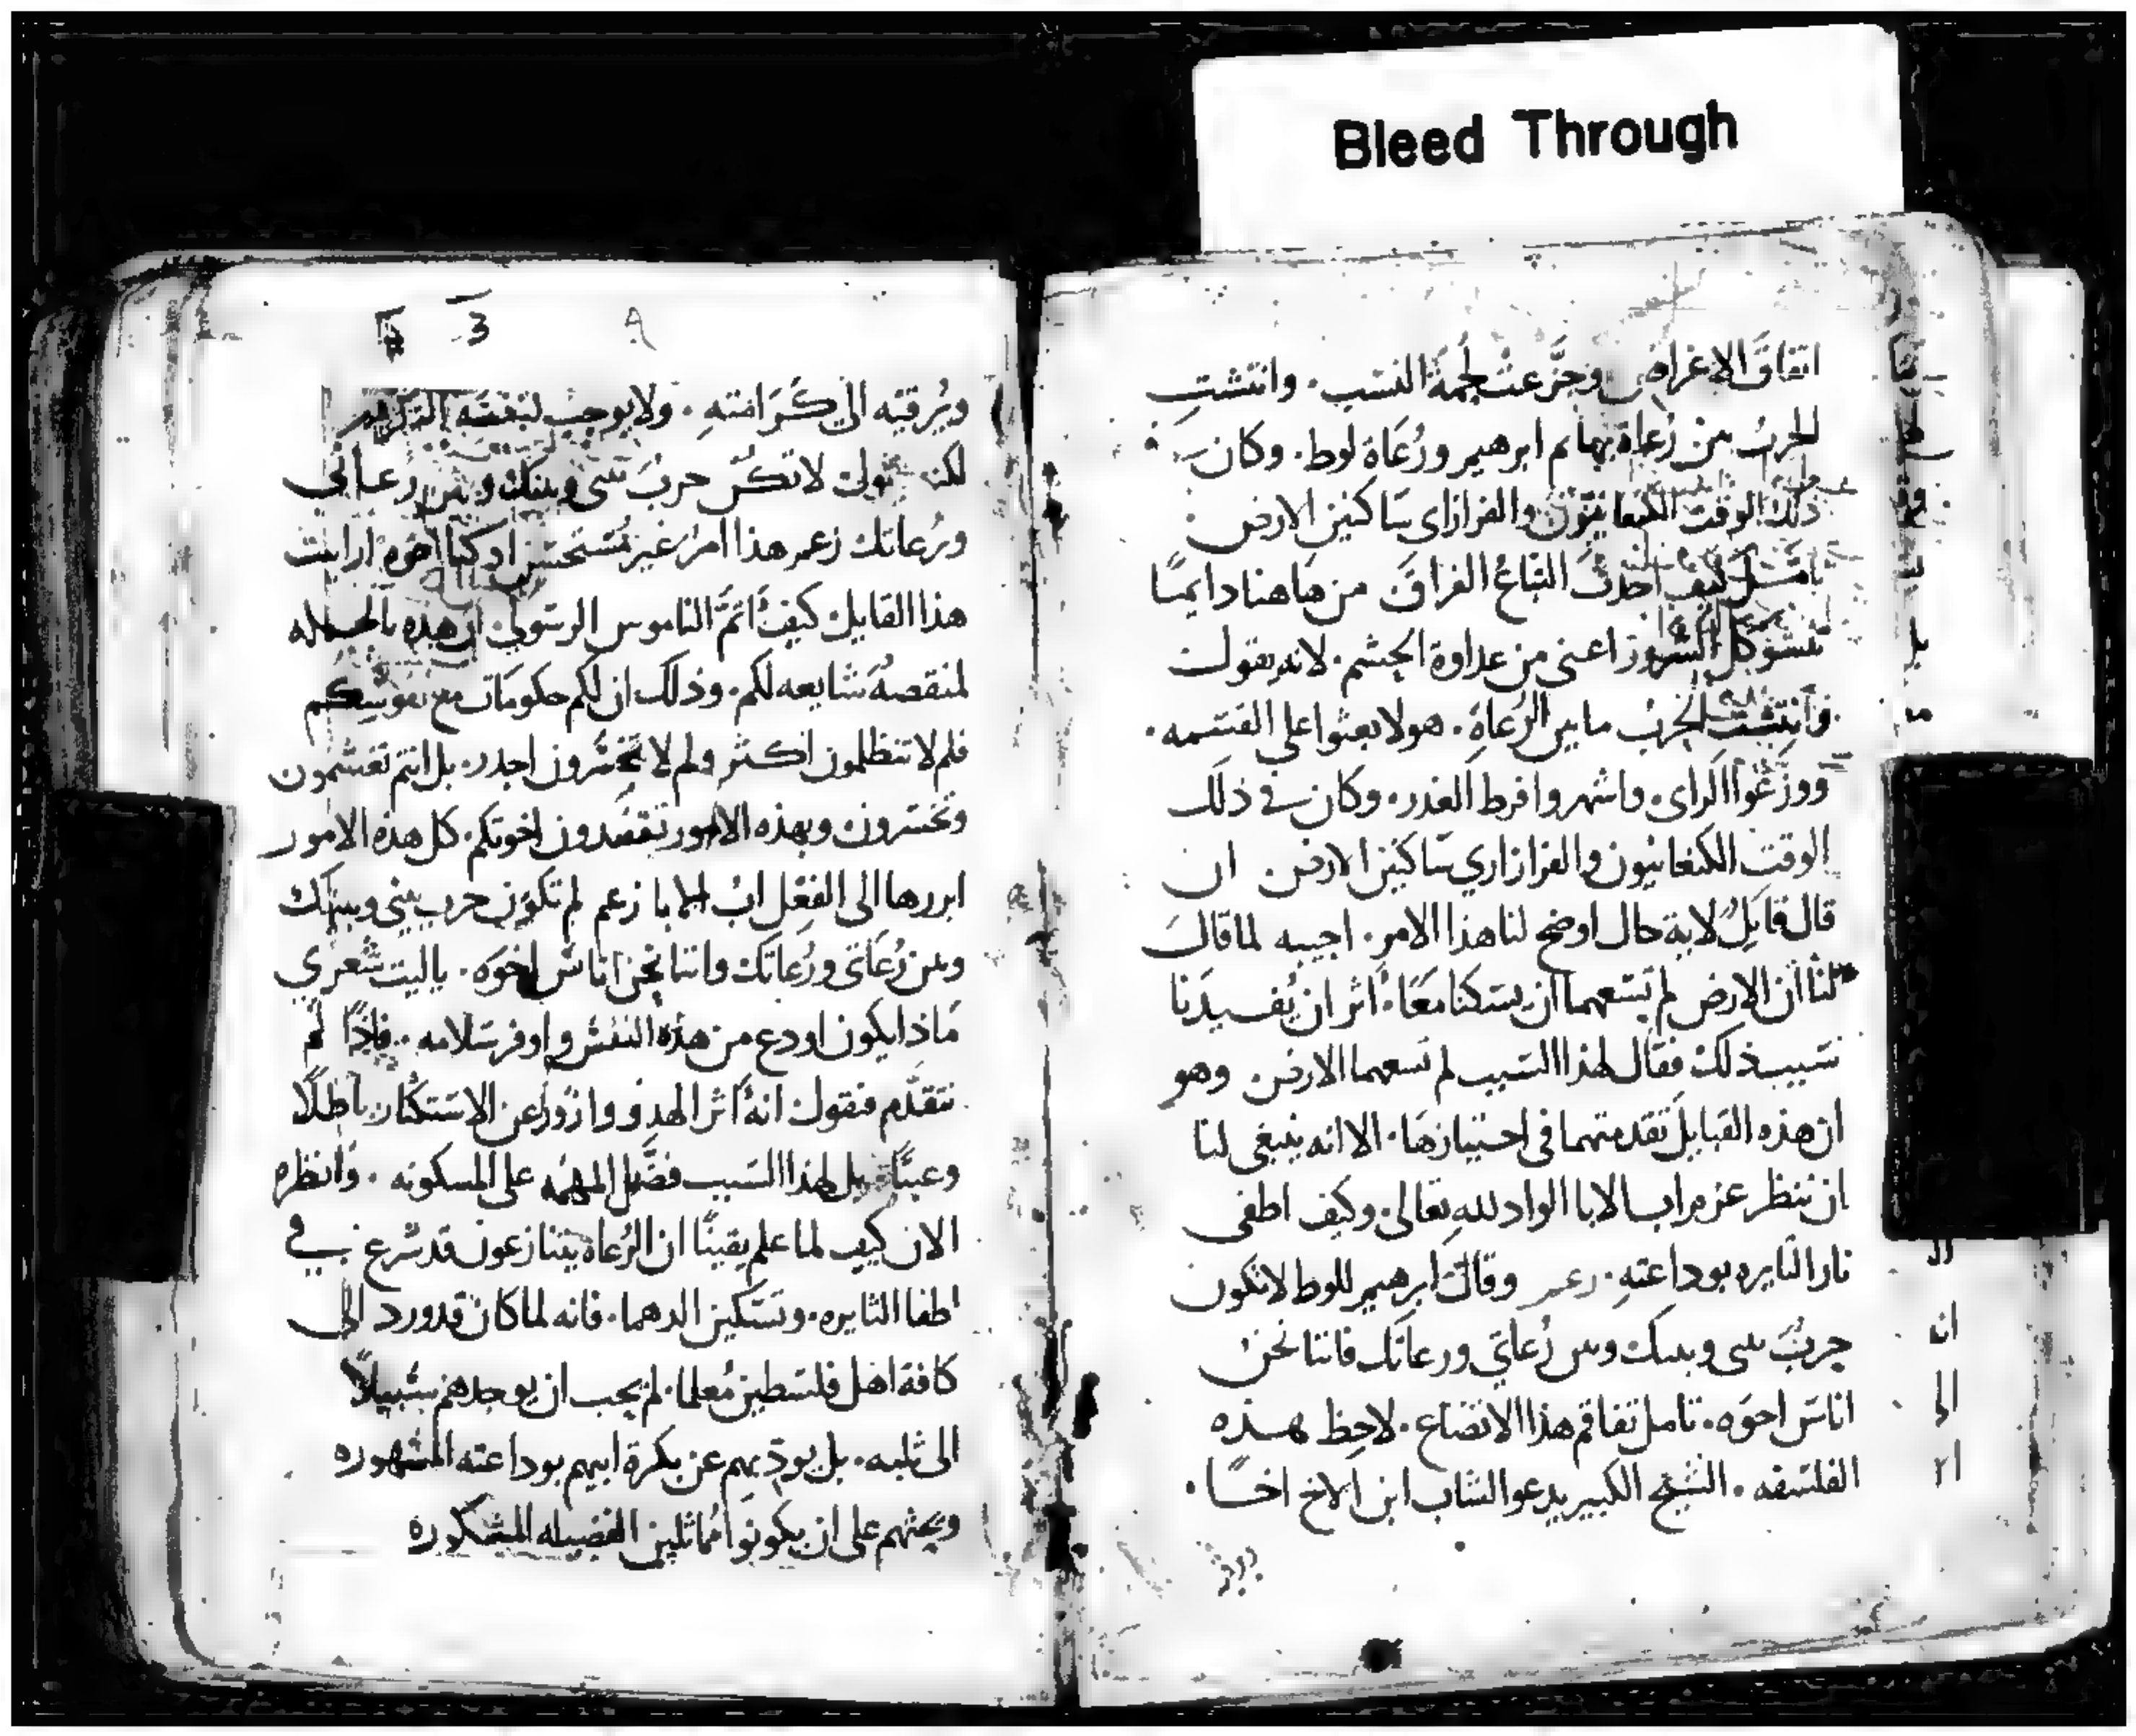 Bleed Through
اتفاق الاغراض وجزعت لحمة النسب. وانتشت
الحرب من رعاة بهايم ابرهيم ورعاة لوط. وكان
ذلك الوقت الكنعانيون والفرازاى ساكنين الارض
احدث اتباع الفراق من هاهنا دايمًا
كل الشرور اعنى من عداوة الجسم. لانه يقول
وانتشت الحرب ما بين الرعاة. هولا بعثوا على القسمه.
ووزعوا الراى. واشهروا فرط الغدر. وكان في ذلك
الوقت الكنعانيون والفرازاري ساكنين الارض ان
قال قايلٌ لاية حال اوضح لنا هذا الامر. اجيبه لما قال
لنا ان الارض لم تسعهما ان يسكنا معًا. اثر ان يفيدنا
سبب ذلك فقال لهذا السبب لم تسعهما الارض وهو
ان هذه القبايل تقدمتهما في احتيازها. الا انه ينبغي لنا
ان ننظر عزم اب الابا الواد لله تعالى. وكيف اطفى
نار النايره بوداعته. زعم وقال ابرهيم للوط لا تكون
حربٌ بينى وبينك وبين رُعاتي ورعاتك فاننا نحن
اناس اخوه. تامل تفاقم هذا الاتضاع. لاحظ هذه
الفلسفه. الشيخ الكبير يدعو الشاب ابن الاخ اخًا.
3
ويُرقيه الي كرامته. ولا يوجب لنفسه التكريم
لكن يقول لا تكن حربٌ بينى وبينك وبين رعاتي
ورُعاتك زعم هذا امرًا غير مستحسن اذ كنا اخوه ارايت
هذا القايل كيف اتم الناموس الرسولي ان هذه بالجمله
لمنقصهٌ شايعه لكم. وذلك ان لكم حكومات مع نفوسكم
فلم لا تنظلمون اكثر ولم لا تخسرون اجدر. بل انتم تغشمون
وتخسرون وبهذه الامور تقصدون اخوتكم. كل هذه الامور
ابررها الى الفعل اب الابا زعم لم تكون حرب بيني وبينك
وبين رُعاتى ورُعاتك واننا نحن اناس اخوه. ياليت شعري
ماذا يكون اودع من هذه النفس واوفر سلامه. فاذًا لم
نتقدم فنقول انه اثر الهدو وازور عن الاستكثار باطلًا
وعبثًا بل لهذا السبب فضل المهمه على المسكونه. وانظره
الان كيف لما علم يقينًا ان الرُعاه يتنازعون قد شرع في
اطفا النايره. وتسكين الدهما. فانه لما كان قد ورد الى
كافة اهل فلسطين مُعلمًا. لم يجب ان يوجدهم سبيلًا
الى ثلبه. بل يودبهم عن بكرة ابيهم بوداعته المشهوره
ويحثهم على ان يكونوا مماثلين الفضيله المشكوره